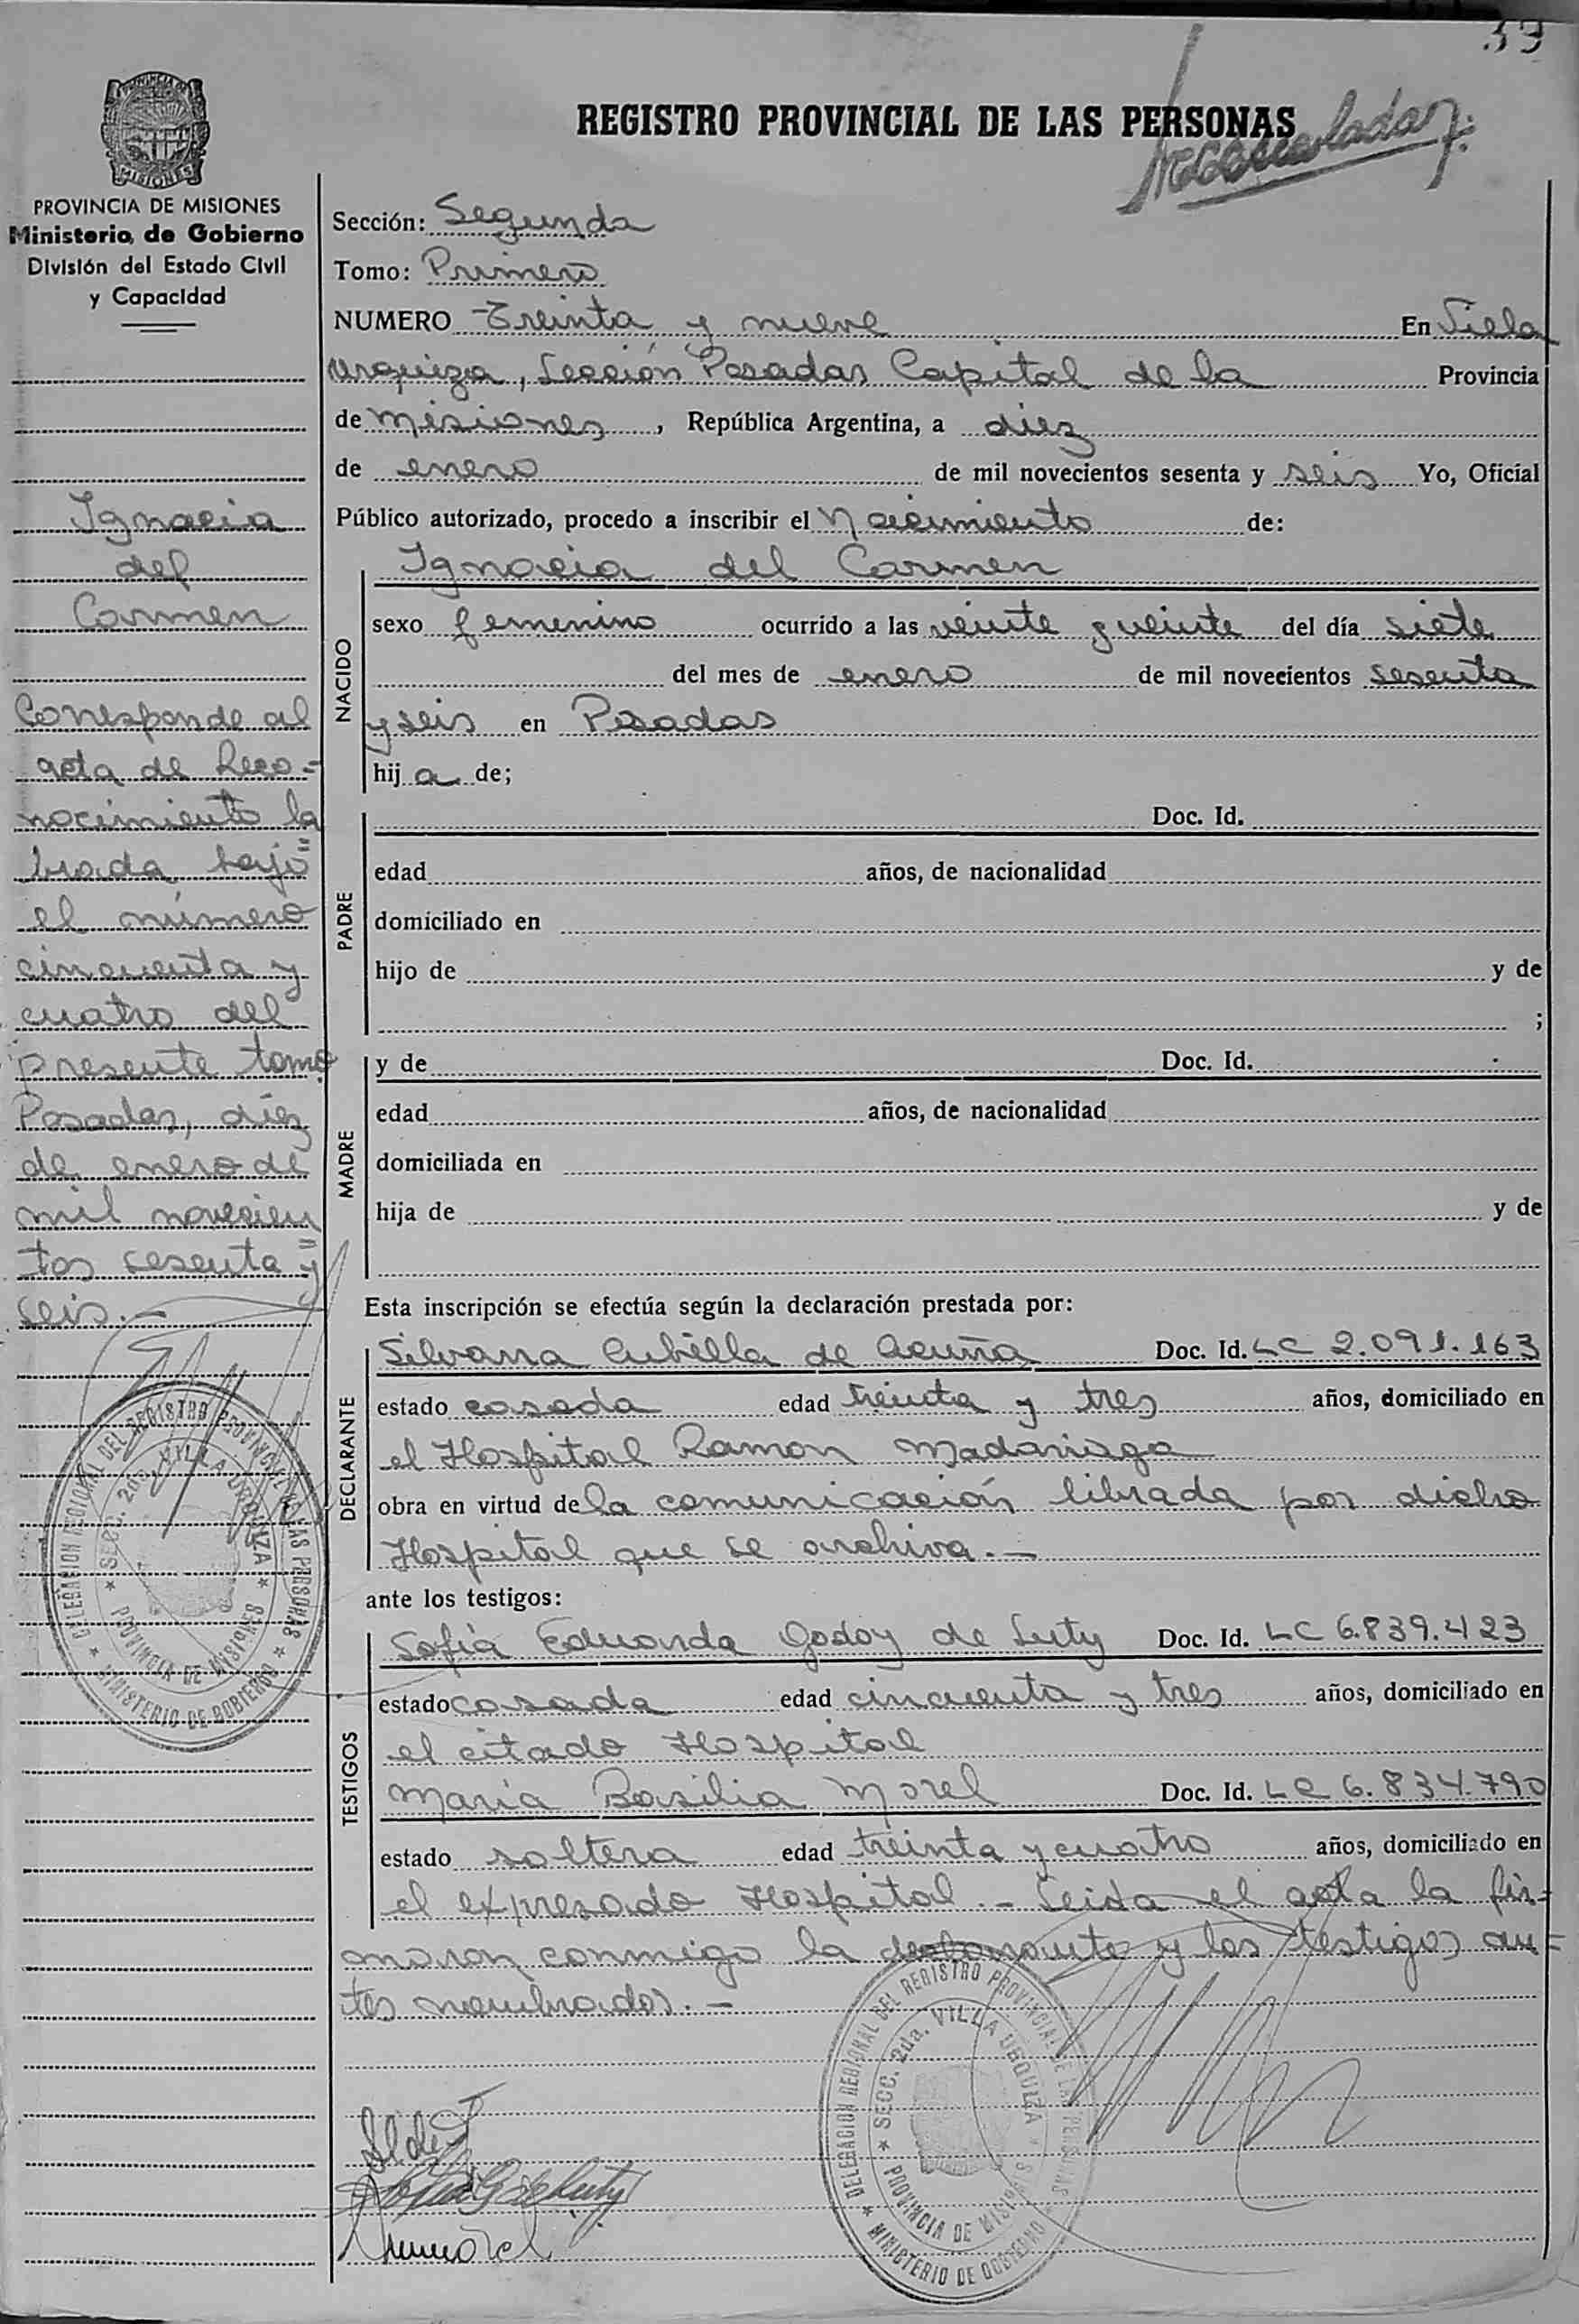 39
REGISTRO PROVINCIAL DE LAS PERSONAS
MISIONES
PROVINCIA DE MISIONES
Ministerio de Gobierno
División del Estado Civil
y Capacidad
Ignacia
del
Carmen
Corresponde al
acta de Reco-
nocimiento la
brada bajo
el número
cincuenta y
cuatro del
presente tomo
Posadas, diez
de enero de
mil novecien
tos sesenta y
seis.-
DELEGACION REGIONAL DEL REGISTRO PROVINCIAL DE LAS PERSONAS
SECC. 2da. VILLA URQUIZA
PROVINCIA DE MISIONES
MINISTERIO DE GOBIERNO
Sección: Segunda
Tomo: Primero
NUMERO Treinta y nueve En Villa
Urquiza, Sección Posadas Capital de la Provincia
de Misiones, República Argentina, a diez
de enero de mil novecientos sesenta y seis Yo, Oficial
Público autorizado, procedo a inscribir el Nacimiento de:
NACIDO
Ignacia del Carmen
sexo femenino ocurrido a las veinte y veinte del día siete
del mes de enero de mil novecientos sesenta
y seis en Posadas
hija de;
PADRE
Doc. Id.
edad años, de nacionalidad
domiciliado en
hijo de y de
;
MADRE
y de Doc. Id.
edad años, de nacionalidad
domiciliada en
hija de y de
Esta inscripción se efectúa según la declaración prestada por:
DECLARANTE
Silvana Cubilla de Acuña Doc. Id. LC 2.091.163
estado casada edad treinta y tres años, domiciliado en
el Hospital Ramon Madariaga
obra en virtud de la comunicación librada por dicho
Hospital que se archiva.-
ante los testigos:
TESTIGOS
Sofía Eduarda Godoy de Luty Doc. Id. LC 6.839.423
estado casada edad cincuenta y tres años, domiciliado en
el citado Hospital
María Basilia Morel Doc. Id. LC 6.834.790
estado soltera edad treinta y cuatro años, domiciliado en
el expresado Hospital.- Leida el acta la fir-
maron conmigo la declarante y los testigos an-
tes nombrados.-
DELEGACION REGIONAL DEL REGISTRO PROVINCIAL DE LAS PERSONAS
SECC. 2da. VILLA URQUIZA
PROVINCIA DE MISIONES
MINISTERIO DE GOBIERNO